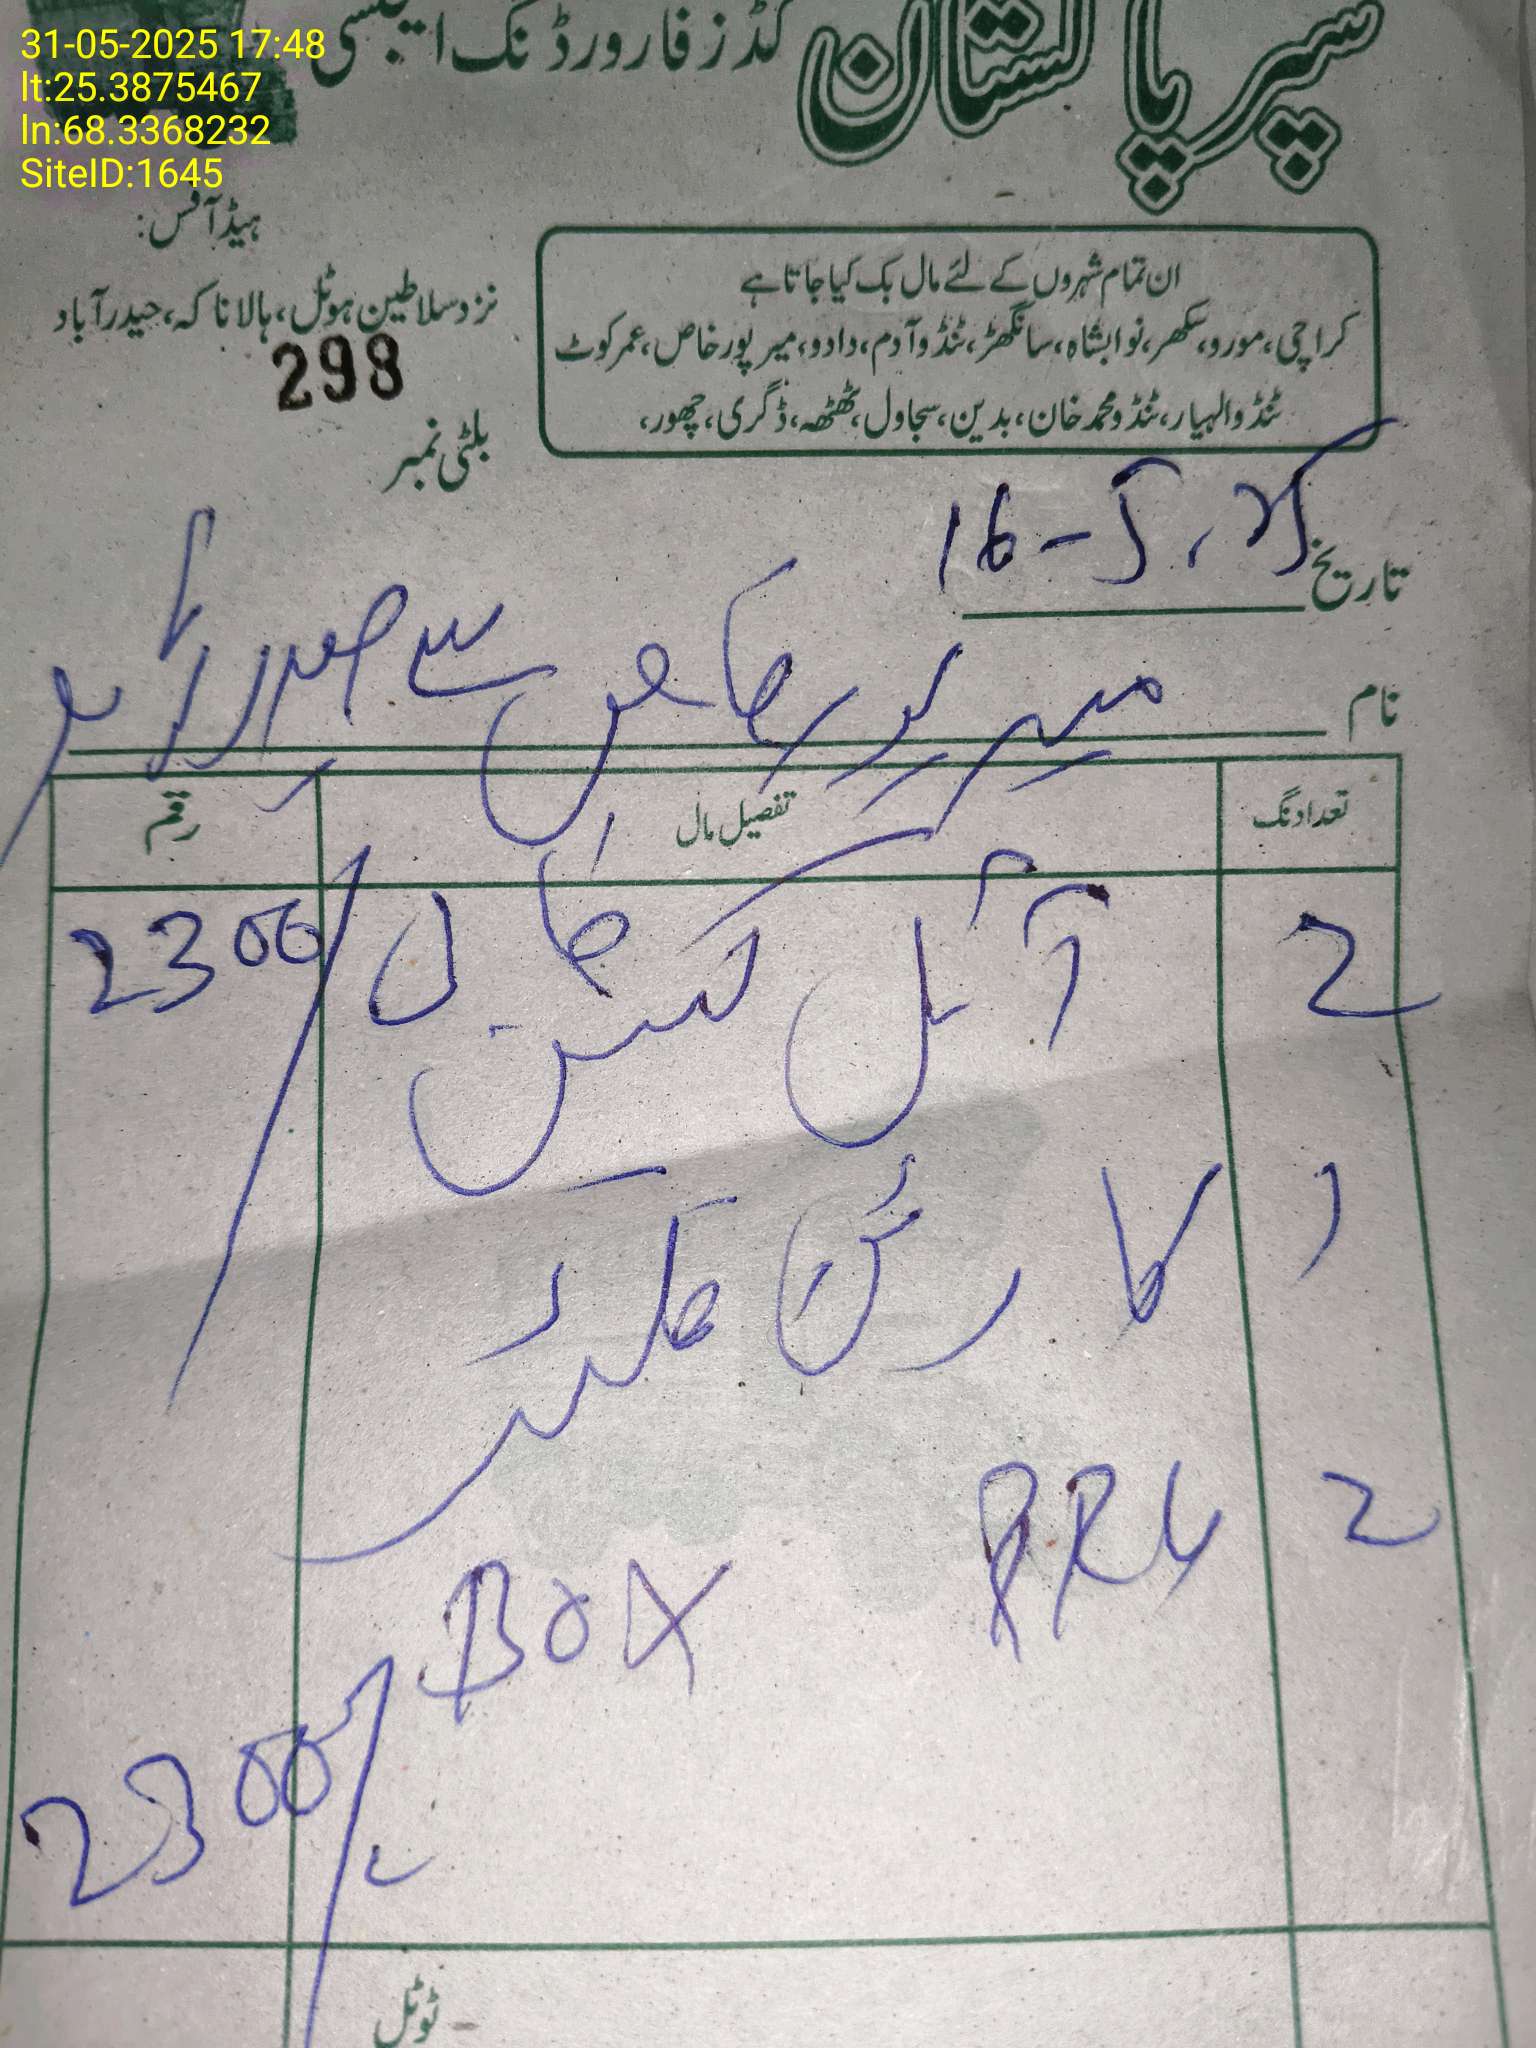 31-05-2025 17:48
lt:25.3875467
ln:68.3368232
SiteID:1645
سپر پاکستان گڈز فارورڈنگ ایجنسی
ہیڈ آفس:
نزد سلاطین ہوٹل، ہالا ناکہ، حیدرآباد
ان تمام شہروں کے لئے مال بک کیا جاتا ہے
کراچی، مورو، سکھر، نوابشاہ، سانگھڑ، ٹنڈو آدم، دادو، میرپور خاص، عمرکوٹ
ٹنڈو الہیار، ٹنڈو محمد خان، بدین، سجاول، ٹھٹھہ، ڈگری، چھور،
298
بلٹی نمبر
تاریخ 16-5.25
نام میرپور خاص سے حیدرآباد
تعداد نگ تفصیل مال رقم
2 آئل کین خالی 2300/
1 کا
2 PRU BOX
2300/
ٹوٹل